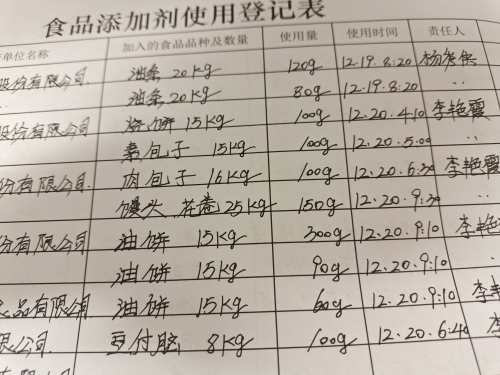 食品添加剂使用登记表
单位名称 加入的食品品种及数量 使用量 使用时间 责任人
股份有限公司 油条 20kg 120g 12.19.8:20
油条 20kg 80g 12.19.8:20 ..
股份有限公司 烧饼 15kg 100g 12.20.4:10 李艳霞
素包子 15kg 100g 12.20.5:00 ..
份有限公司 肉包子 16kg 100g 12.20.6:30 李艳霞
馒头 花卷 25kg 150g 12.20.9:30 ..
份有限公司 油饼 15kg 300g 12.20.9:10 李艳
油饼 15kg 90g 12.20.9:10 ..
品有限公司 油饼 15kg 60g 12.20.9:10 李艳
限公司 豆付脑 8kg 100g 12.20.6:40 李
有限公司